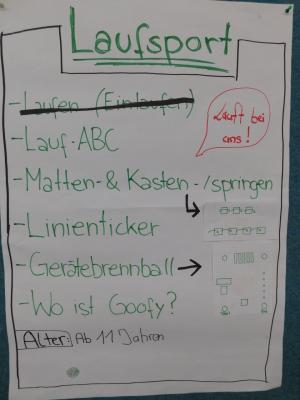 Laufsport
-Laufen (Einlaufen)
-Lauf-ABC
Lauft bei
uns!
-Matten- & Kasten-/springen
-Linienticker
-Gerätebrennball →
-Wo ist Goofy?
Alter: Ab 11 Jahren